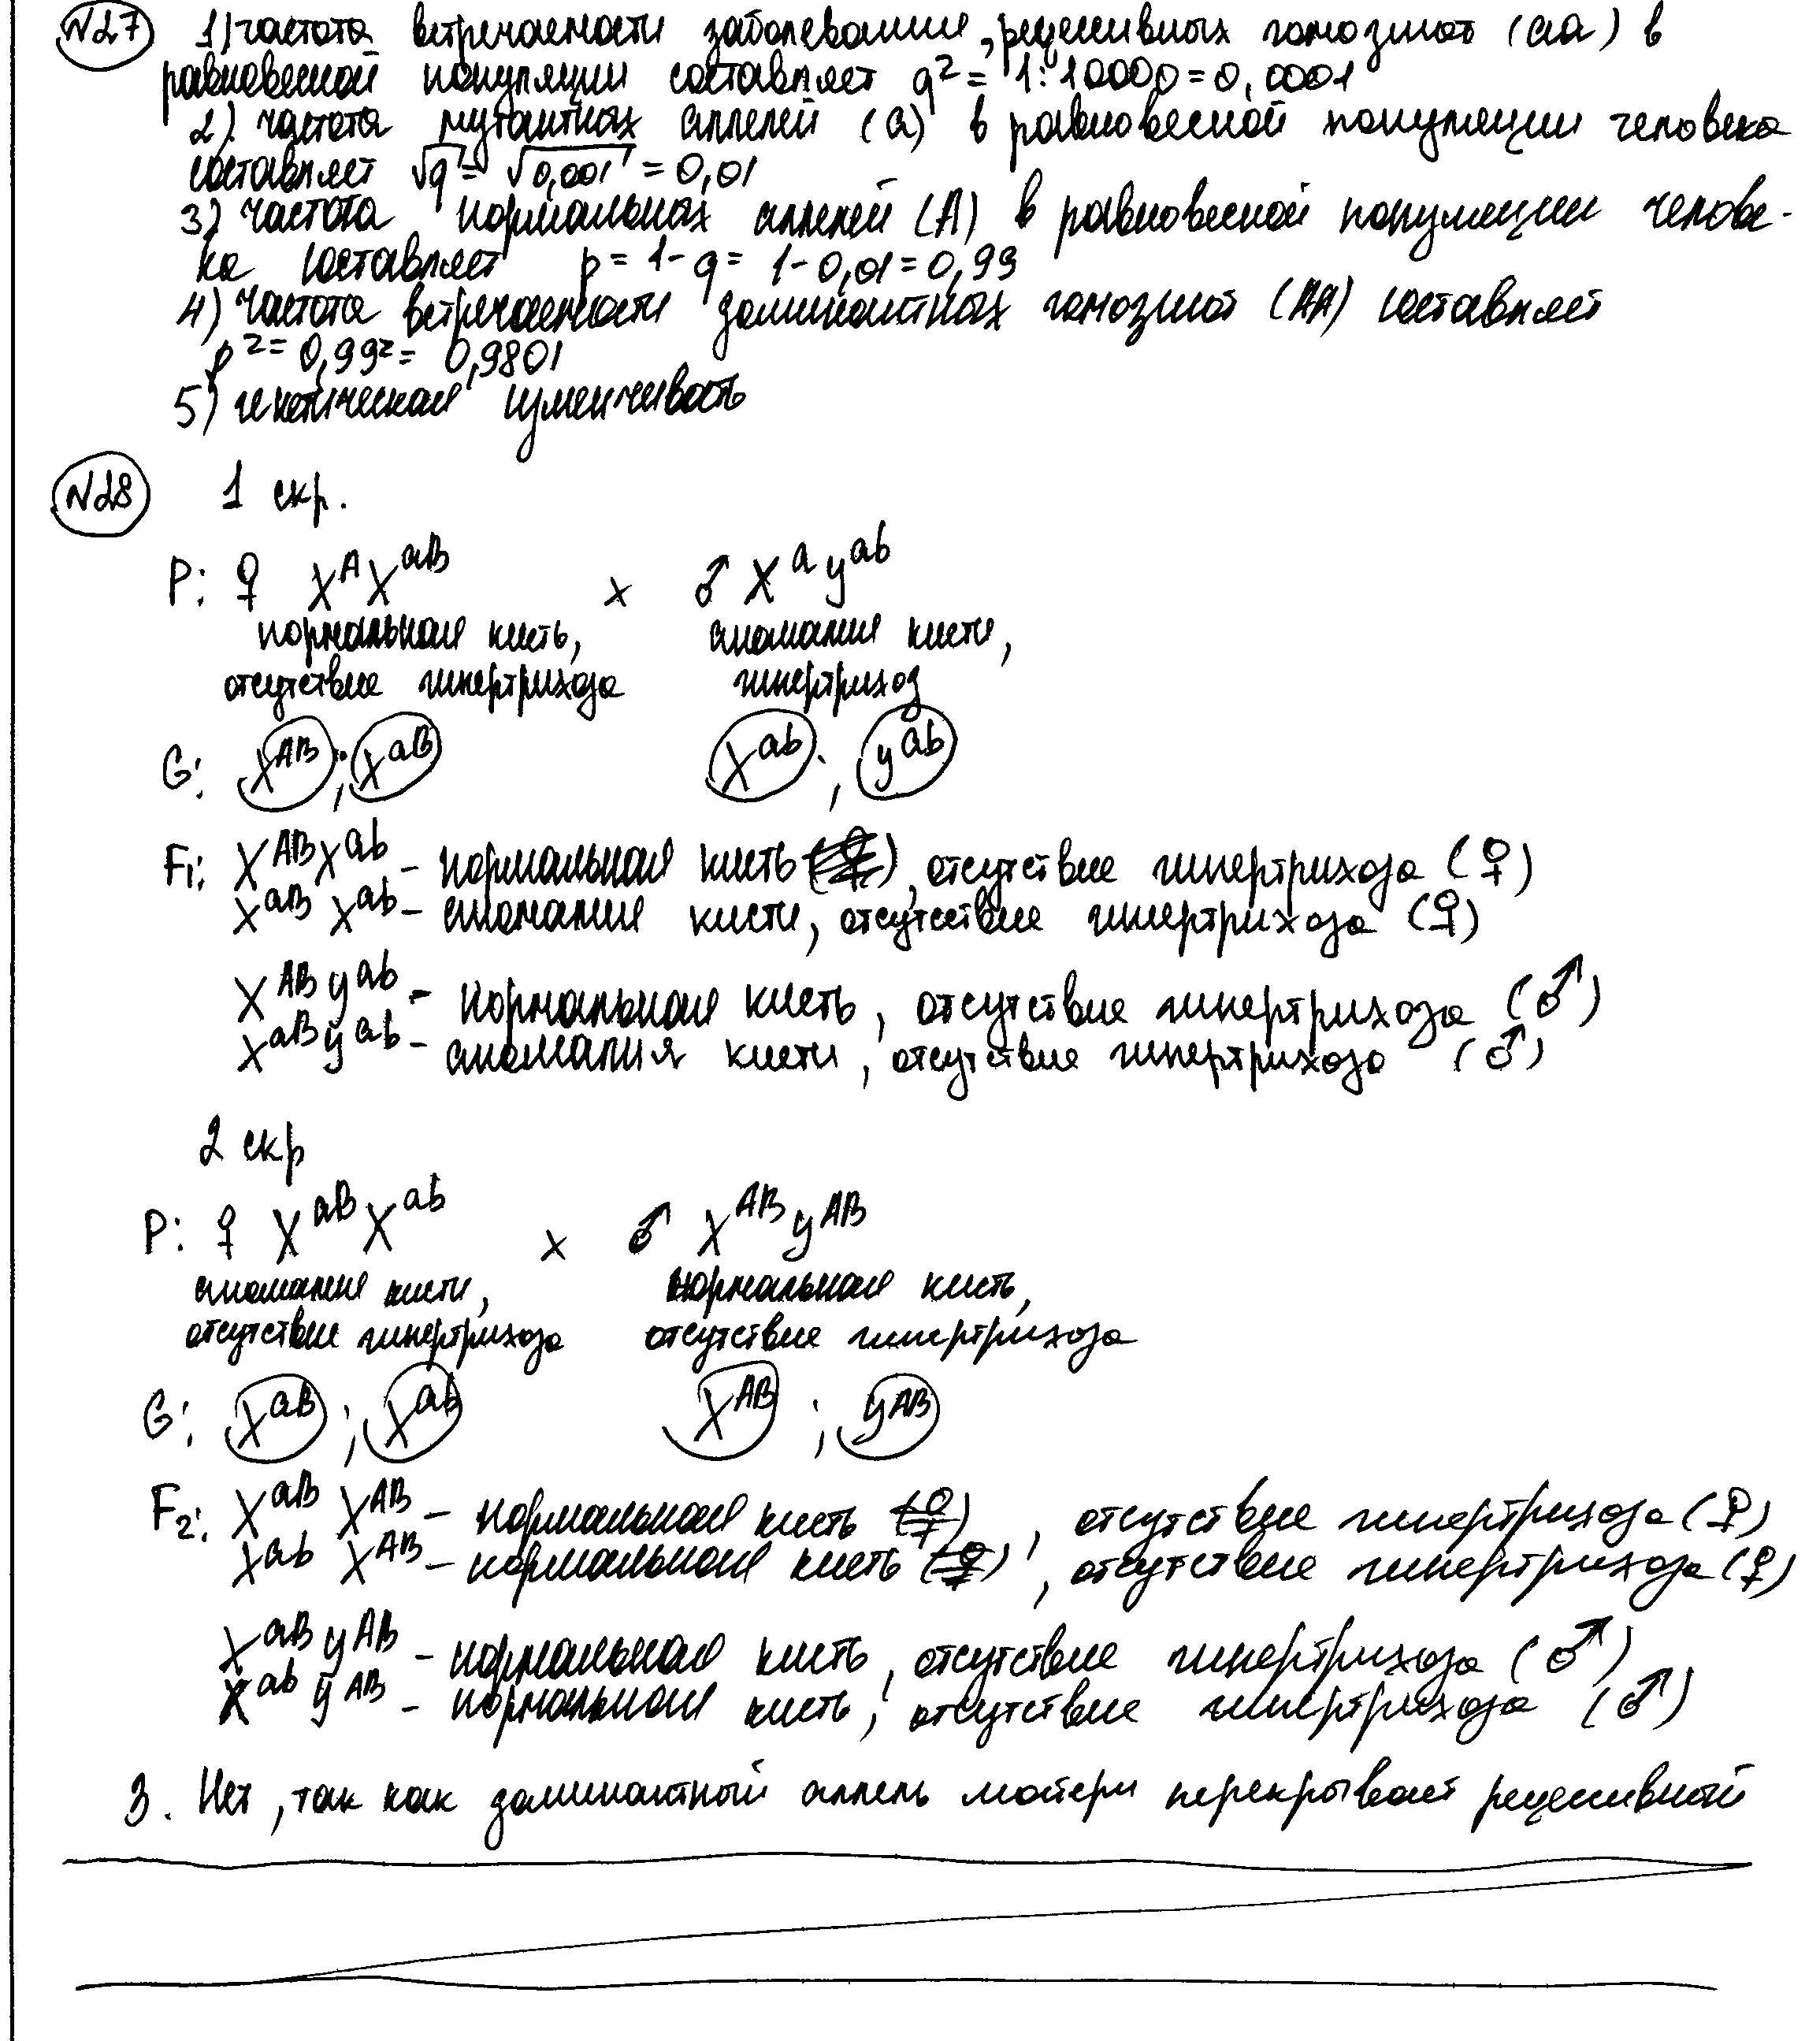 N27 1) частота встречаемости заболевания, рецессивных гомозигот (аа) в
равновесной популяции составляет q² = 1:10000 = 0,0001
2) частота мутантных аллелей (а) в равновесной популяции человека
составляет √q = √0,001 = 0,01
3) частота нормальных аллелей (А) в равновесной популяции челове-
ка составляет p = 1-q = 1-0,01 = 0,99
4) частота встречаемости доминантных гомозигот (АА) составляет
p² = 0,99² = 0,9801
5) генетическая изменчивость
N28 1 скр.
P: ♀ X^A X^aB x ♂ X^a y^ab
нормальная кисть, аномалия кисти,
отсутствие гипертрихоза гипертрихоз
G: X^AB ; X^aB X^ab ; y^ab
F1: X^AB X^ab – нормальная кисть, отсутствие гипертрихоза (♀)
X^aB X^ab – аномалия кисти, отсутствие гипертрихоза (♀)
X^AB y^ab – нормальная кисть, отсутствие гипертрихоза (♂)
X^aB y^ab – аномалия кисти, отсутствие гипертрихоза (♂)
2 скр
P: ♀ X^aB X^ab x ♂ X^AB y^AB
аномалия кисти, нормальная кисть,
отсутствие гипертрихоза отсутствие гипертрихоза
G: X^aB ; X^ab X^AB ; y^AB
F2: X^aB X^AB – нормальная кисть, отсутствие гипертрихоза (♀)
X^ab X^AB – нормальная кисть, отсутствие гипертрихоза (♀)
X^aB y^AB – нормальная кисть, отсутствие гипертрихоза (♂)
X^ab y^AB – нормальная кисть, отсутствие гипертрихоза (♂)
3. Нет, так как доминантный аллель матери перекрывает рецессивный